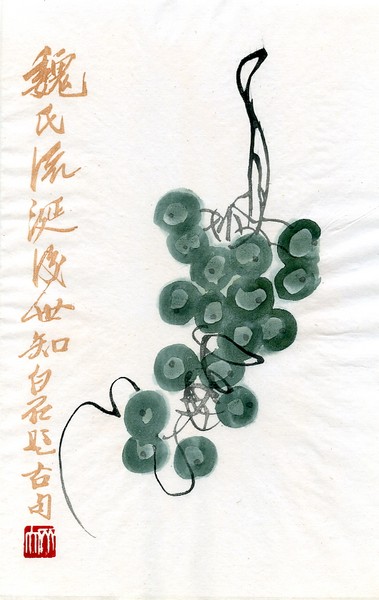 魏氏流涎後世知白題古句